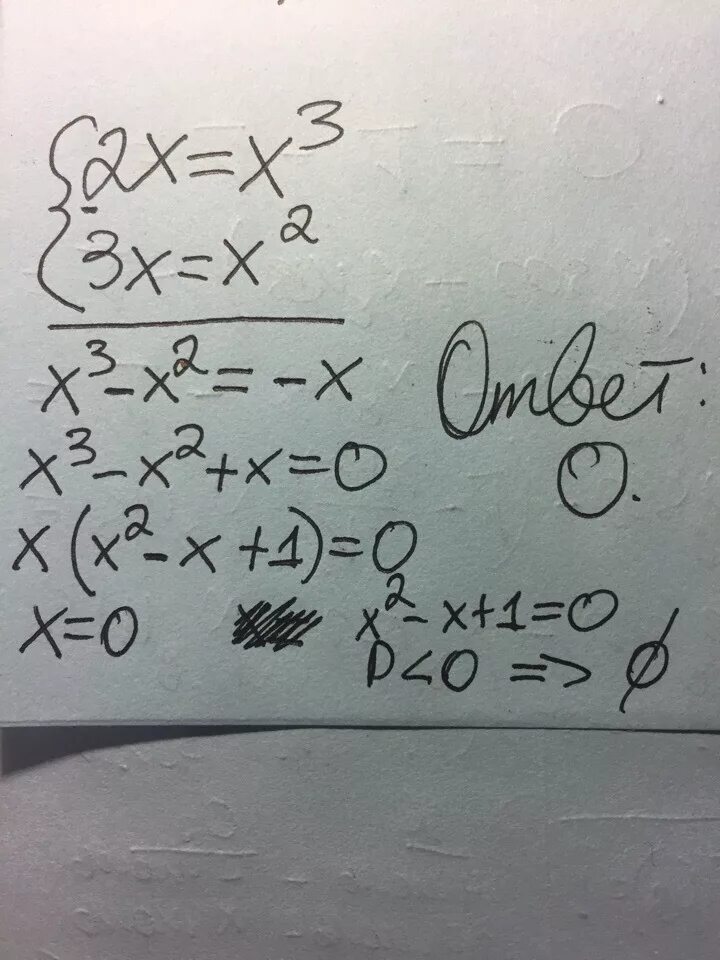 {2x=x³
{3x=x²
x³-x²=-x
x³-x²+x=0
x(x²-x+1)=0
x=0
x²-x+1=0
D<0 => ∅
Ответ:
0.